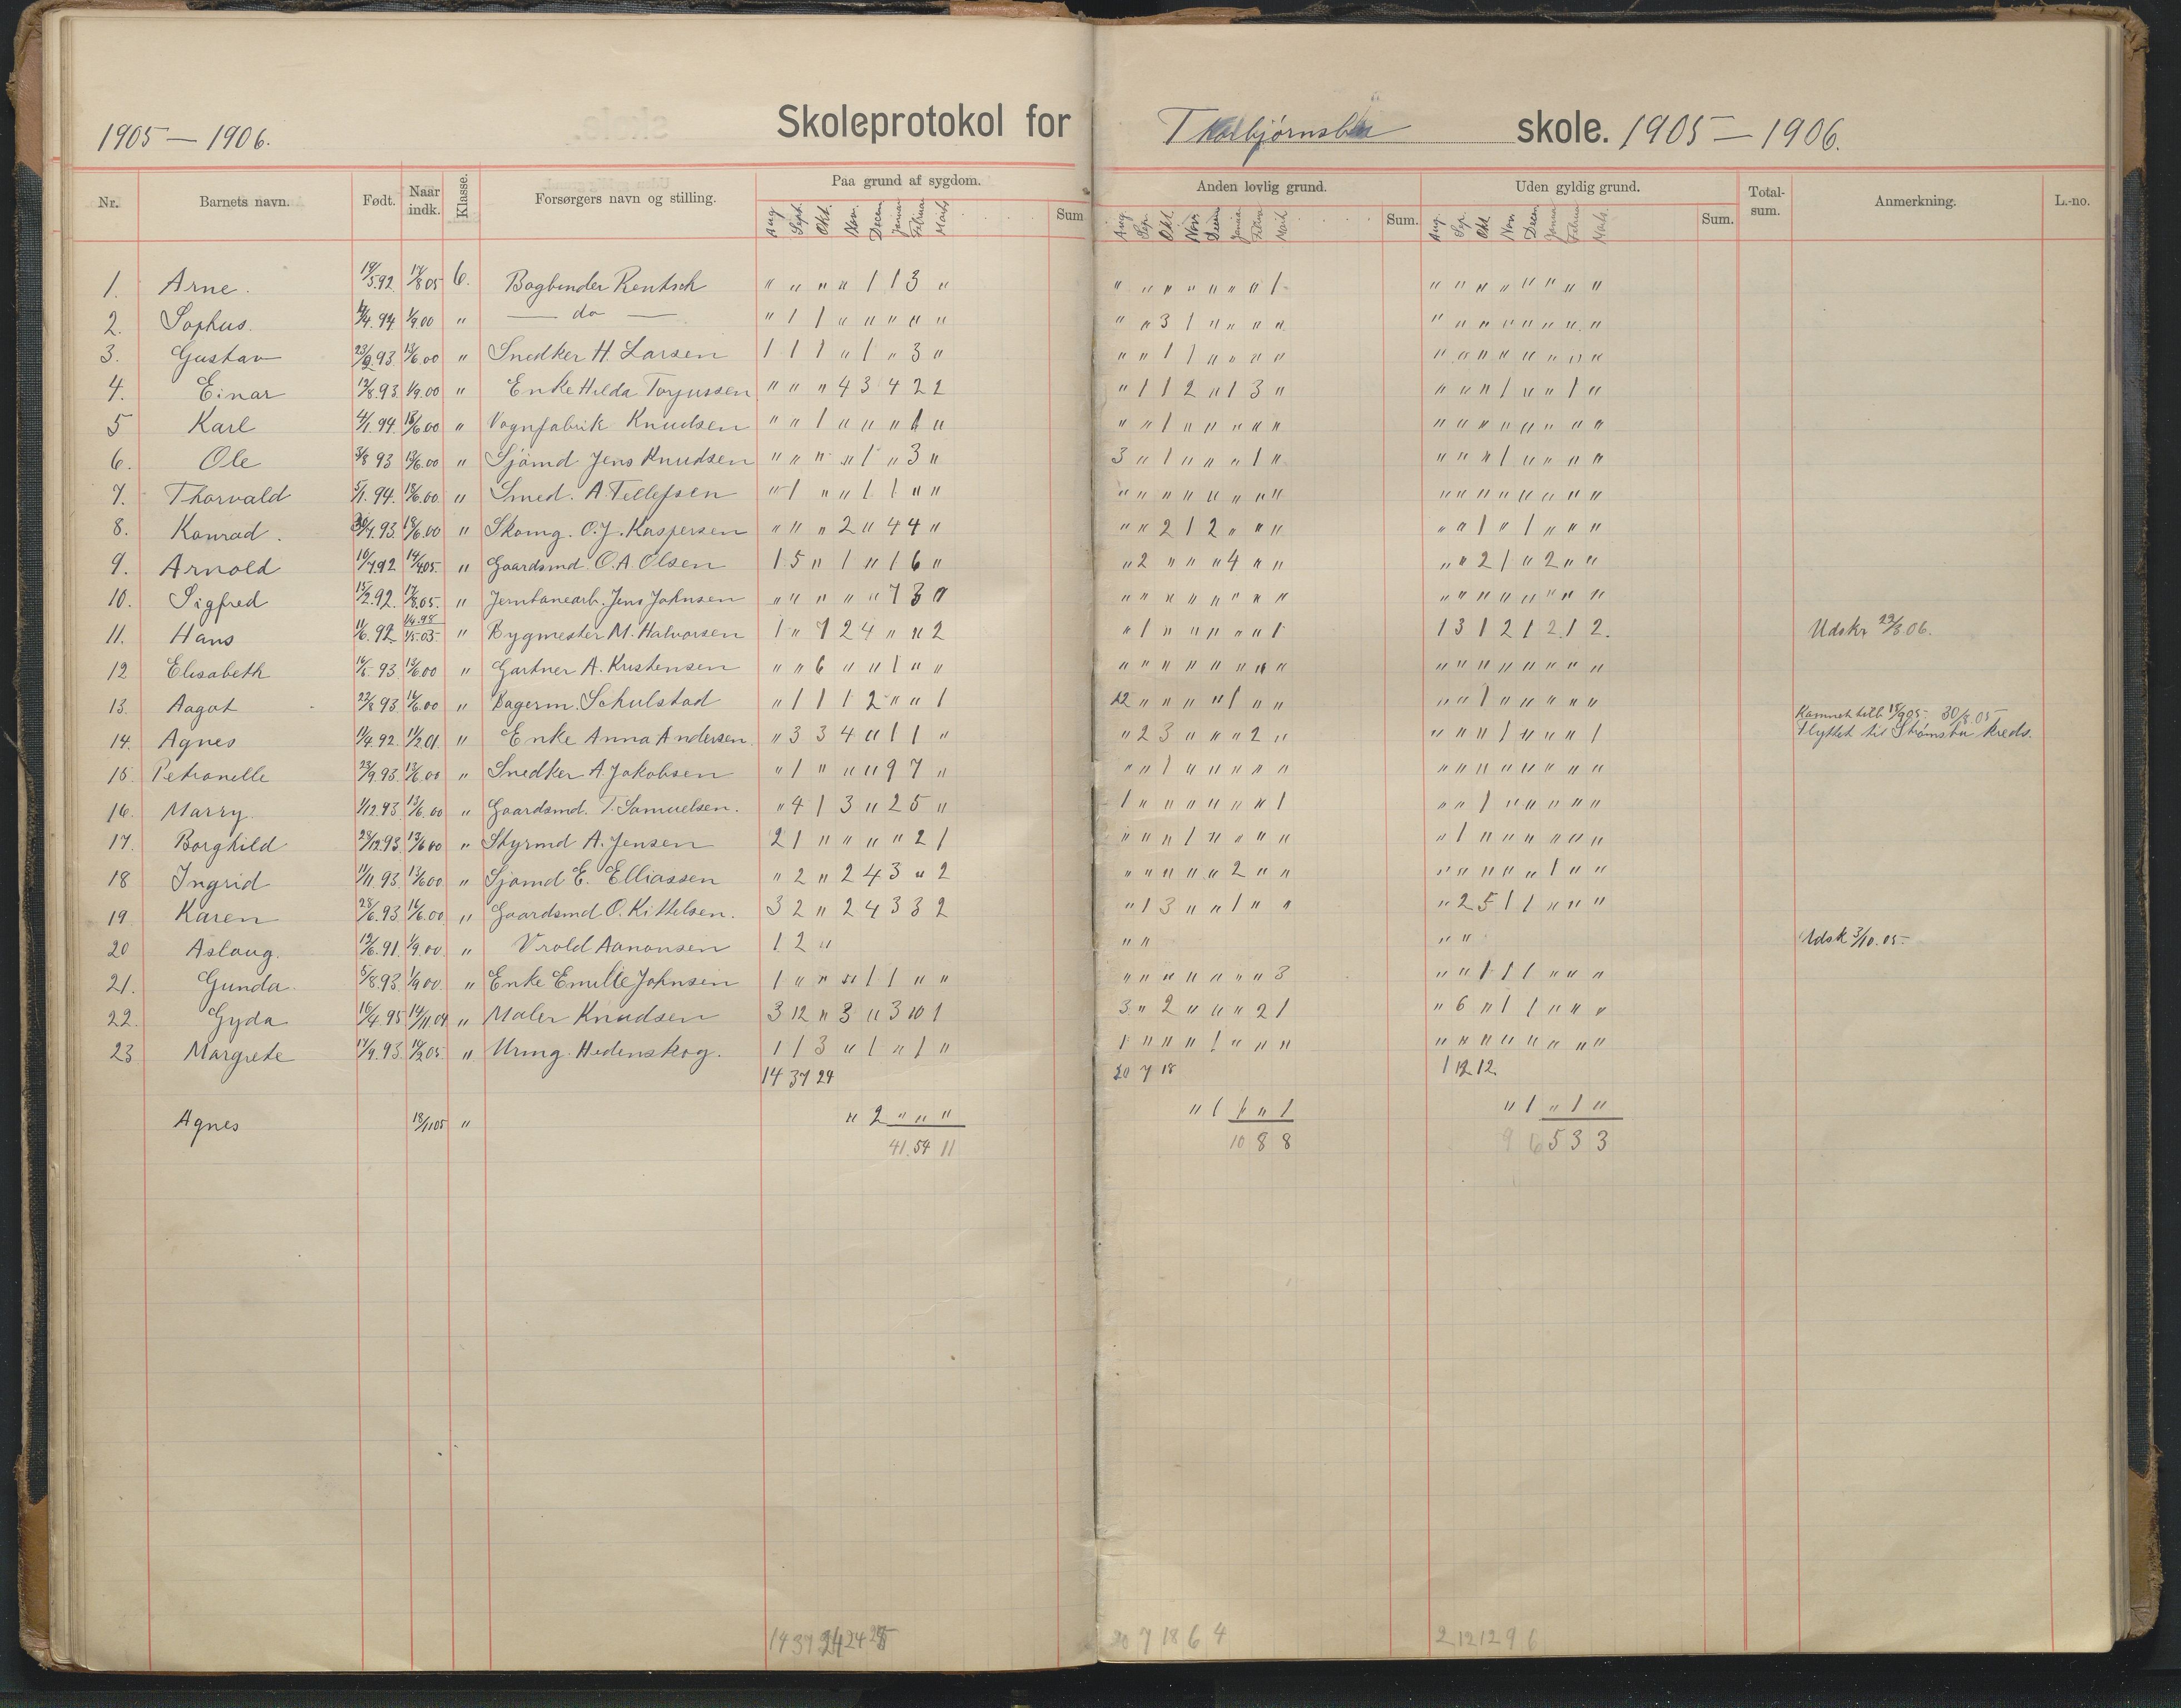 1905 — 1906.
Skoleprotokol for Thorbjørnsbu skole. 1905 — 1906.
Nr. Barnets navn. Født. Naar indk. Klasse. Forsørgers navn og stilling. Paa grund af sygdom. Sum Anden lovlig grund. Sum. Uden gyldig grund. Sum. Total-sum. Anmerkning. L.-no.
Aug. Sept. Okt. Nov. Decem Januar Februar Marts Aug. Sep. Okt. Nov. Decem Janua. Febru Mart Aug. Sep. Okt. Nov. Decem Januar Februar Marts.
1. Arne. 19/5.92 17/8 05 6. Bogbinder Rentsch " " " " 1 1 3 " " " " " " " " 1 " " " " " " " "
2. Sophus. 4.94 1/9.00 " — do — " 1 1 " " " " " " " 3 1 " " " " " " " " " " " "
3. Gustav 23/9.93 13/6 00 " Snedker H. Larsen 1 1 1 " 1 " 3 " " " 1 1 " " " " " " " " " " " "
4. Einar 12/8.93 1/9.00 " Enke Hilda Torjussen " " " 4 3 4 2 2 " 1 1 2 " 1 3 " " " " 1 " " 1 "
5 Karl 4/1.94. 18/6.00 " Vognfabrik Knudsen " " 1 " " " 1 " " " 1 " " " " " " " " " " " " "
6. Ole 3/8 93 13/6.00 " Sjømd Jens Knudsen " " " " 1 " 3 " 3 " 1 " " " 1 " " " " 1 " " " "
7. Thorvald 5/1.94. 18/6.00 " Smed. A. Tellefsen " 1 " " 1 1 " " " " " " " " " " " " " " " " " "
8. Konrad. 93 18/6.00 " Skomg. O.J. Kaspersen " " " 2 " 4 4 " " " 2 1 2 " " " " " 1 " 1 " " "
9. Arnold 10/7.92 14/4 05. " Gaardsmd. O.A. Olsen 1 5 " 1 " 1 6 " " 2 " " " 4 " " " " 2 1 " 2 " "
10. Sigfred 15/2.92. 17/8.05. " Jernbanearb. Jens Johnsen " " " " " 7 3 " " " " " " " " " " " " " " " " "
11. Hans 11/6.92 1/4.98 1/5.03 " Bygmester M. Halvorsen 1 " 7 2 4 " " 2 " 1 " " " " " 1 1 3 1 2 1 2 1 2. Udskr 29/3.06.
12 Elisabeth 16/5.93 13/6.00 " Gartner A. Kristensen " " 6 " " 1 " " " " " " " " " " " " " " " " " "
13. Aagot 22/8 93 16/6.00 " Bagerm. Schulstad " 1 1 1 2 " " 1 12 " " " " 1 " " " " 1 " " " " "
14. Agnes 11/4.92. 11/2 01. " Enke Anna Andersen " 3 3 4 " 1 1 " " 2 3 " " " 2 " " " " 1 " " " 1 Flyttet til Strømsbu kreds.
15. Petronelle 23/9.93. 13/6.00 " Snedker A. Jakobsen " 1 " " " 9 7 " " " 1 " " " " " " " " " " " " "
16. Marry 1/12.93 13/6.00 " Gaardsmd. T. Samuelsen. " 4 1 3 " 2 5 " 1 " " " " " " 1 " " 1 " " " " "
17. Borghild 28/12.93 13/6 00 " Styrmd A. Jensen 2 1 " " " " 2 1 " " " 1 " " " " " 1 " " " " " "
18 Ingrid 11/11.93 13/6.00 " Sjømd E. Elliassen " 2 " 2 4 3 " 2 " " " " " 2 " " " " " " " 1 " "
19 Karen 28/6.93 16/6.00 " Gaardsmd O. Kittelsen. 3 2 " 2 4 3 3 2 " 1 3 " " 1 " " " 2 5 1 1 " " "
20 Aslaug. 12/6.91 1/9.00 " Vrold Aanonsen 1 2 " " " " " Udsk 3/10.05.
21. Gunda 5/8.93 1/9.00 " Enke Emilie Johnsen 1 " " " 1 1 " " " " " " " " " 3 " " 1 1 1 " " "
22. Gyda 16/4.95 14/11.04 " Maler Knudsen 3 12 " 3 " 3 10 1 3 " 2 " " " 2 1 " 6 " 1 1 " " "
23 Margrete 17/9.93 " Urmg. Hedenskog. 1 1 3 " 1 " 1 " 1 " " " 1 " " " " " " " " " " "
14 37 24 20 7 18 1 12 12
Agnes 18/11 05 " " 2 " " " " 1 1 " 1 " 1 " 1 "
41.54 11 10 8 8 9 6 5 3 3
14 37 24 24 20 7 18 6 4 2 12 12 9 6